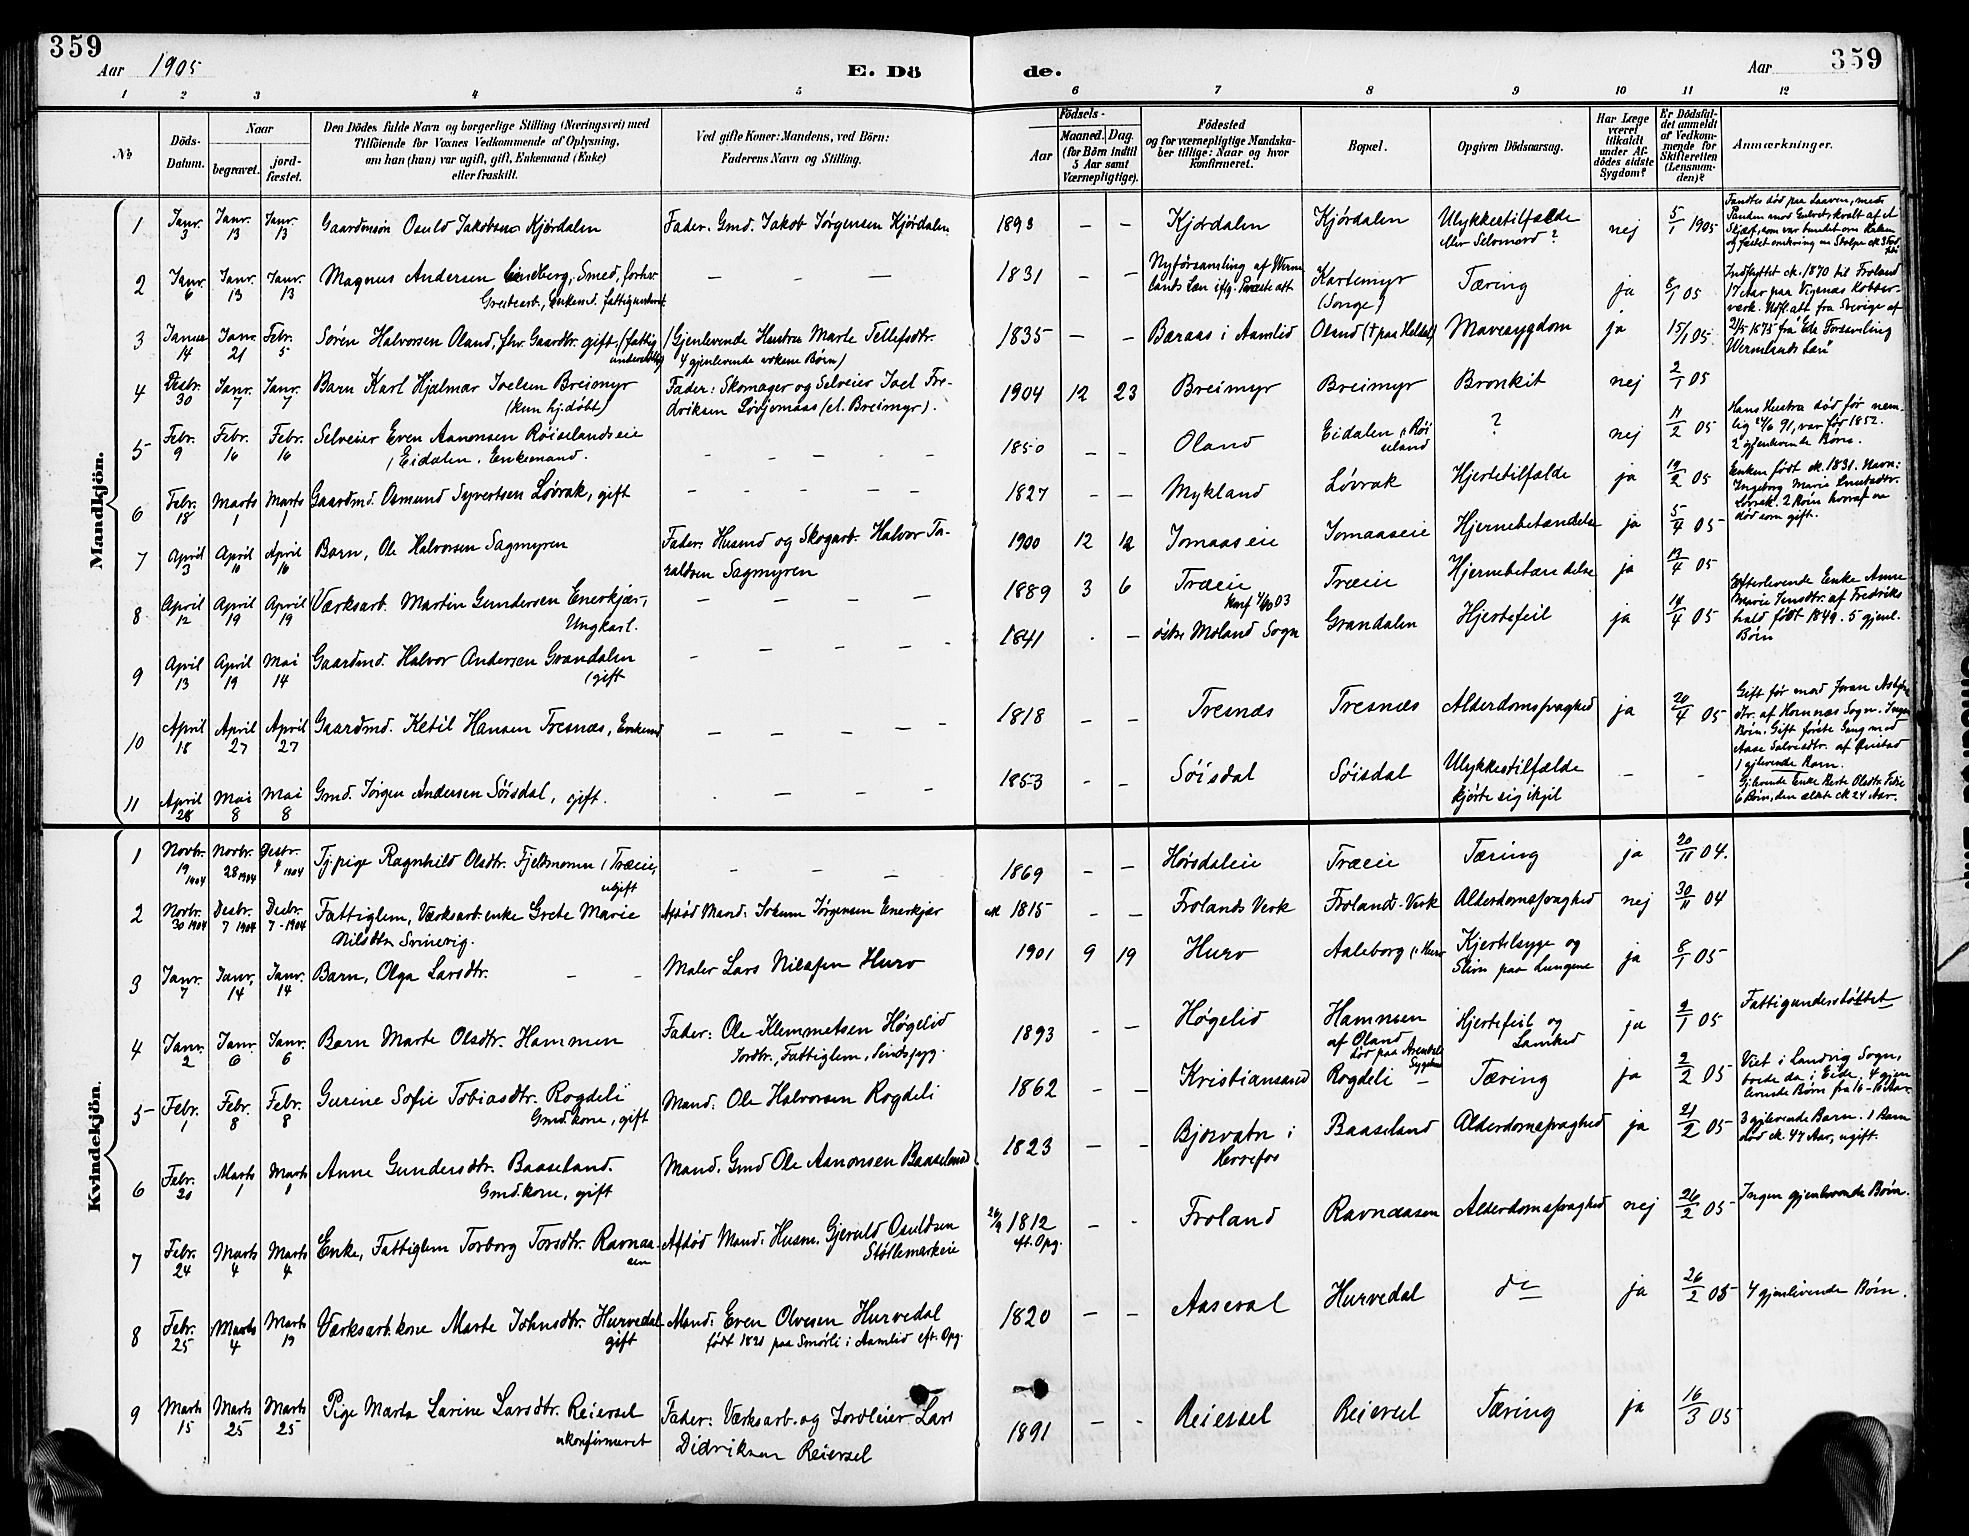 359
Aar 1905
E. Dö
de.
Aar
359
1 2 3 4 5 6 7 8 9 10 11 12
No
Döds-Datum.
Naar
begravet.
jord-fæstet.
Den Dödes fulde Navn og borgerlige Stilling (Næringsvei) med
Tilföiende for Voxnes Vedkommende af Oplysning,
om han (hun) var ugift, gift, Enkemand (Enke)
eller fraskilt.
Ved gifte Koner: Mandens, ved Börn:
Faderens Navn og Stilling.
Födsels-
Aar
Maaned. Dag.
(for Börn indtil
5 Aar samt
Værnepligtige).
Födested
og for værnepligtige Mandska-
ber tillige: Naar og hvor
konfirmeret.
Bopæl.
Opgiven Dödsaarsag.
Har Læge
været
tilkaldt
under Af-
dödes sidste
Sygdom?
Er Dödsfal-
det anmeldt
af Vedkom-
mende for
Skifteretten
(Lensman-
den)?
Anmærkninger.
Mandkjön.
1 Janr. 3 Janr. 13 Janr. 13 Gaardmsøn Osuld Jakobsen Kjørdalen Fader: Gmd. Jakob Jørgensen Kjørdalen 1893 – – Kjørdalen Kjørdalen Ulykkestilfælde eller Selvmord? nej 5/1 1905
Fandtes død paa Laaven, med
Panden mod Gulvet, kvalt af et
2 Janr. 6 Janr. 13 Janr. 13 Magnus Andersen Lindberg, Smed, forhv. Grubearb., Enkemd. fattigunderst. – – – 1831 – – Kartemyr (Songe) Tæring ja 6/1 05
Indflyttet ck. 1870 til Froland
17 Aar paa Vigenæs Kobber-
værk. Udfl. att. fra Sverige af
2/5 1873 fra Eda Forsamling
Wermlands Län
3 Januar 14 Janr. 21 Febr. 5 Søren Halvorsen Oland, fhv. Gaardbr. gift (fattig understøtt.) (Gjenlevende Hustru Marte Tellefsdtr. 4 gjenlevende voksne Børn) 1835 – – Baraas i Aamlid Oland Mavesygdom ja 15/1 05
4 Desbr. 30 Janr. 7 Janr. 7 Barn Karl Hjalmar Joelsen Breimyr (kun hj. døbt) Fader: Skomager og Selveier Joel Fredriksen Løvjomaas (el. Breimyr). 1904 12 23 Breimyr Breimyr Bronkit nej 2/1 05
5 Febr. 9 Febr. 16 Febr. 16 Selveier Even Aanonsen Røiselandseie, Eidalen. Enkemand. – – – – 1850 – – Oland Eidalen, Røiseland ? nej 11/2 05
Hans Hustru død før nem-
lig 21/6 91, var født 1852.
2 gjenlevende Børn.
6 Febr. 18 Marts 1 Marts 1 Gaardmd. Osmund Syvertsen Løvrak, gift – – – – 1827 – – Mykland Løvrak Hjertetilfælde ja 19/2 05
Enken født ck. 1831. Navn:
Ingeborg Marie
Løvrak. 2 Børn hvoraf en
død som gift.
7 April 3 April 16 April 16 Barn, Ole Halvorsen Sagmyren Fader: Husmd og Skogarb. Halvor Taraldsen Sagmyren 1900 12 12 Jomaaseie Jomaaseie Hjernebetændelse ja 5/4 05
8 April 12 April 19 April 19 Værksarb. Martin Gundersen Enerkjær, Ungkarl. – – – – 1889 3 6 Træeie Konf 4/10 03 Træeie Hjernebetændelse ja 13/4 05
9 April 13 April 19 Mai 14 Gaardmd. Halvor Andersen Grandalen (gift – – – – 1841 – – østre Moland Sogn Grandalen Hjertefeil ja 14/4 05
Efterlevende Enke Anne
Marie Jensdtr. af Fredriks
hald født 1849. 5 gjenl.
Børn
10 April 18 April 27 April 27 Gaardmd. Ketil Hansen Tresnæs, Enkemd – – – – 1818 – – Tresnæs Tresnæs Alderdomssvaghed ja 20/4 05
dtr. af Hornnæs Sogn. Ingen
Børn. Gift første Gang med
Aase Salvesdtr. af
1 gjlevende Barn.
11 April 28 Mai 8 Mai 8 Gmd. Jørgen Andersen Søisdal, gift. – – – – 1853 – – Søisdal Søisdal Ulykkestilfælde kjørte sig ihjel – –
6 Børn, den ældste ck 24 Aar.
Kvindekjön.
1 Novbr. 19 1904 Novbr. 28 1904 Desbr. 4 1904 Tj.pige Ragnhild Olsdtr. Fjeldmoen, Træeie, ugift – – – 1869 – – Hørsdaleie Træeie Tæring ja 20/11 04.
2 Novbr. 30 1904 Desbr. 7 1904 Desbr. 7 - 1904 Fattiglem, Værksarb.enke Grete Marie Nilsdtr. Svinevig. Afdød Mand: Jokum Jørgensen Enerkjær ck 1815 – – Frolands Verk Frolands Verk Alderdomssvaghed nej 30/11 04
3 Janr. 7 Janr. 14 Janr. 14 Barn, Olga Larsdtr. – – Maler Lars Nilssen Hurv 1901 9 19 Hurv Aaleborg i Hurv Kjertelsyge og Slim paa Lungene ja 8/1 05
4 Janr. 2 Janr. 6 Janr. 6 Barn Marte Olsdtr. Hammen Fader: Ole Klemmetsen Høgelid Jordbr., Fattiglem, Sindssyg. 1893 – – Høgelid Hammen af Oland død paa Arendals Sygehus Hjertefeil og Lamhed ja 2/1 05 Fattigunderstøttet
5 Febr. 1 Febr. 8 Febr. 8 Gurine Sofie Tobiasdtr. Rogdeli Gmd.kone, gift Mand: Ole Halvorsen Rogdeli 1862 – – Kristianssand Rogdeli – Tæring ja 2/2 05
Viet i Landvig Sogn,
boede da i Eide. 4 gjen
levende Børn
6 Febr. 20 Marts 1 Marts 1 Anne Gundersdtr. Baaseland. Gmd.kone, gift Mand: Gmd Ole Aanonsen Baaseland 1823 – – Bjorvatn i Herrefos Baaseland Alderdomssvaghed ja 21/2 05
3 gjlevende Børn. 1 Barn
død ck. 47 Aar, ugift.
7 Febr. 24 Marts 4 Marts 4 Enke, Fattiglem Torborg Torsdtr. Ravnaasen Afdød Mand: Husm. Gjeruld Osuldsen Støllemarkeie 26/9 1812 eft. Opg. – – Froland Ravnaasen Alderdomssvaghed nej 26/2 05 Ingen gjenlevende Børn.
8 Febr. 25 Marts 4 Marts 19 Værksarb.kone Marte Johnsdtr. Hurvedal gift Mand: Even Olvesen Hurvedal født 1821 paa Smørli i Aamlid eft. Opg. 1820 – – Aaseral Hurvedal do ja 26/2 05 4 gjenlevende Børn.
9 Marts 15 Marts 25 Marts 25 Pige Marta Larine Larsdtr. Reiersel ukonfirmeret Fader: Værksarb. og Jordleier Lars Didriksen Reiersel 1891 – – Reiersel Reiersel Tæring ja 16/3 05